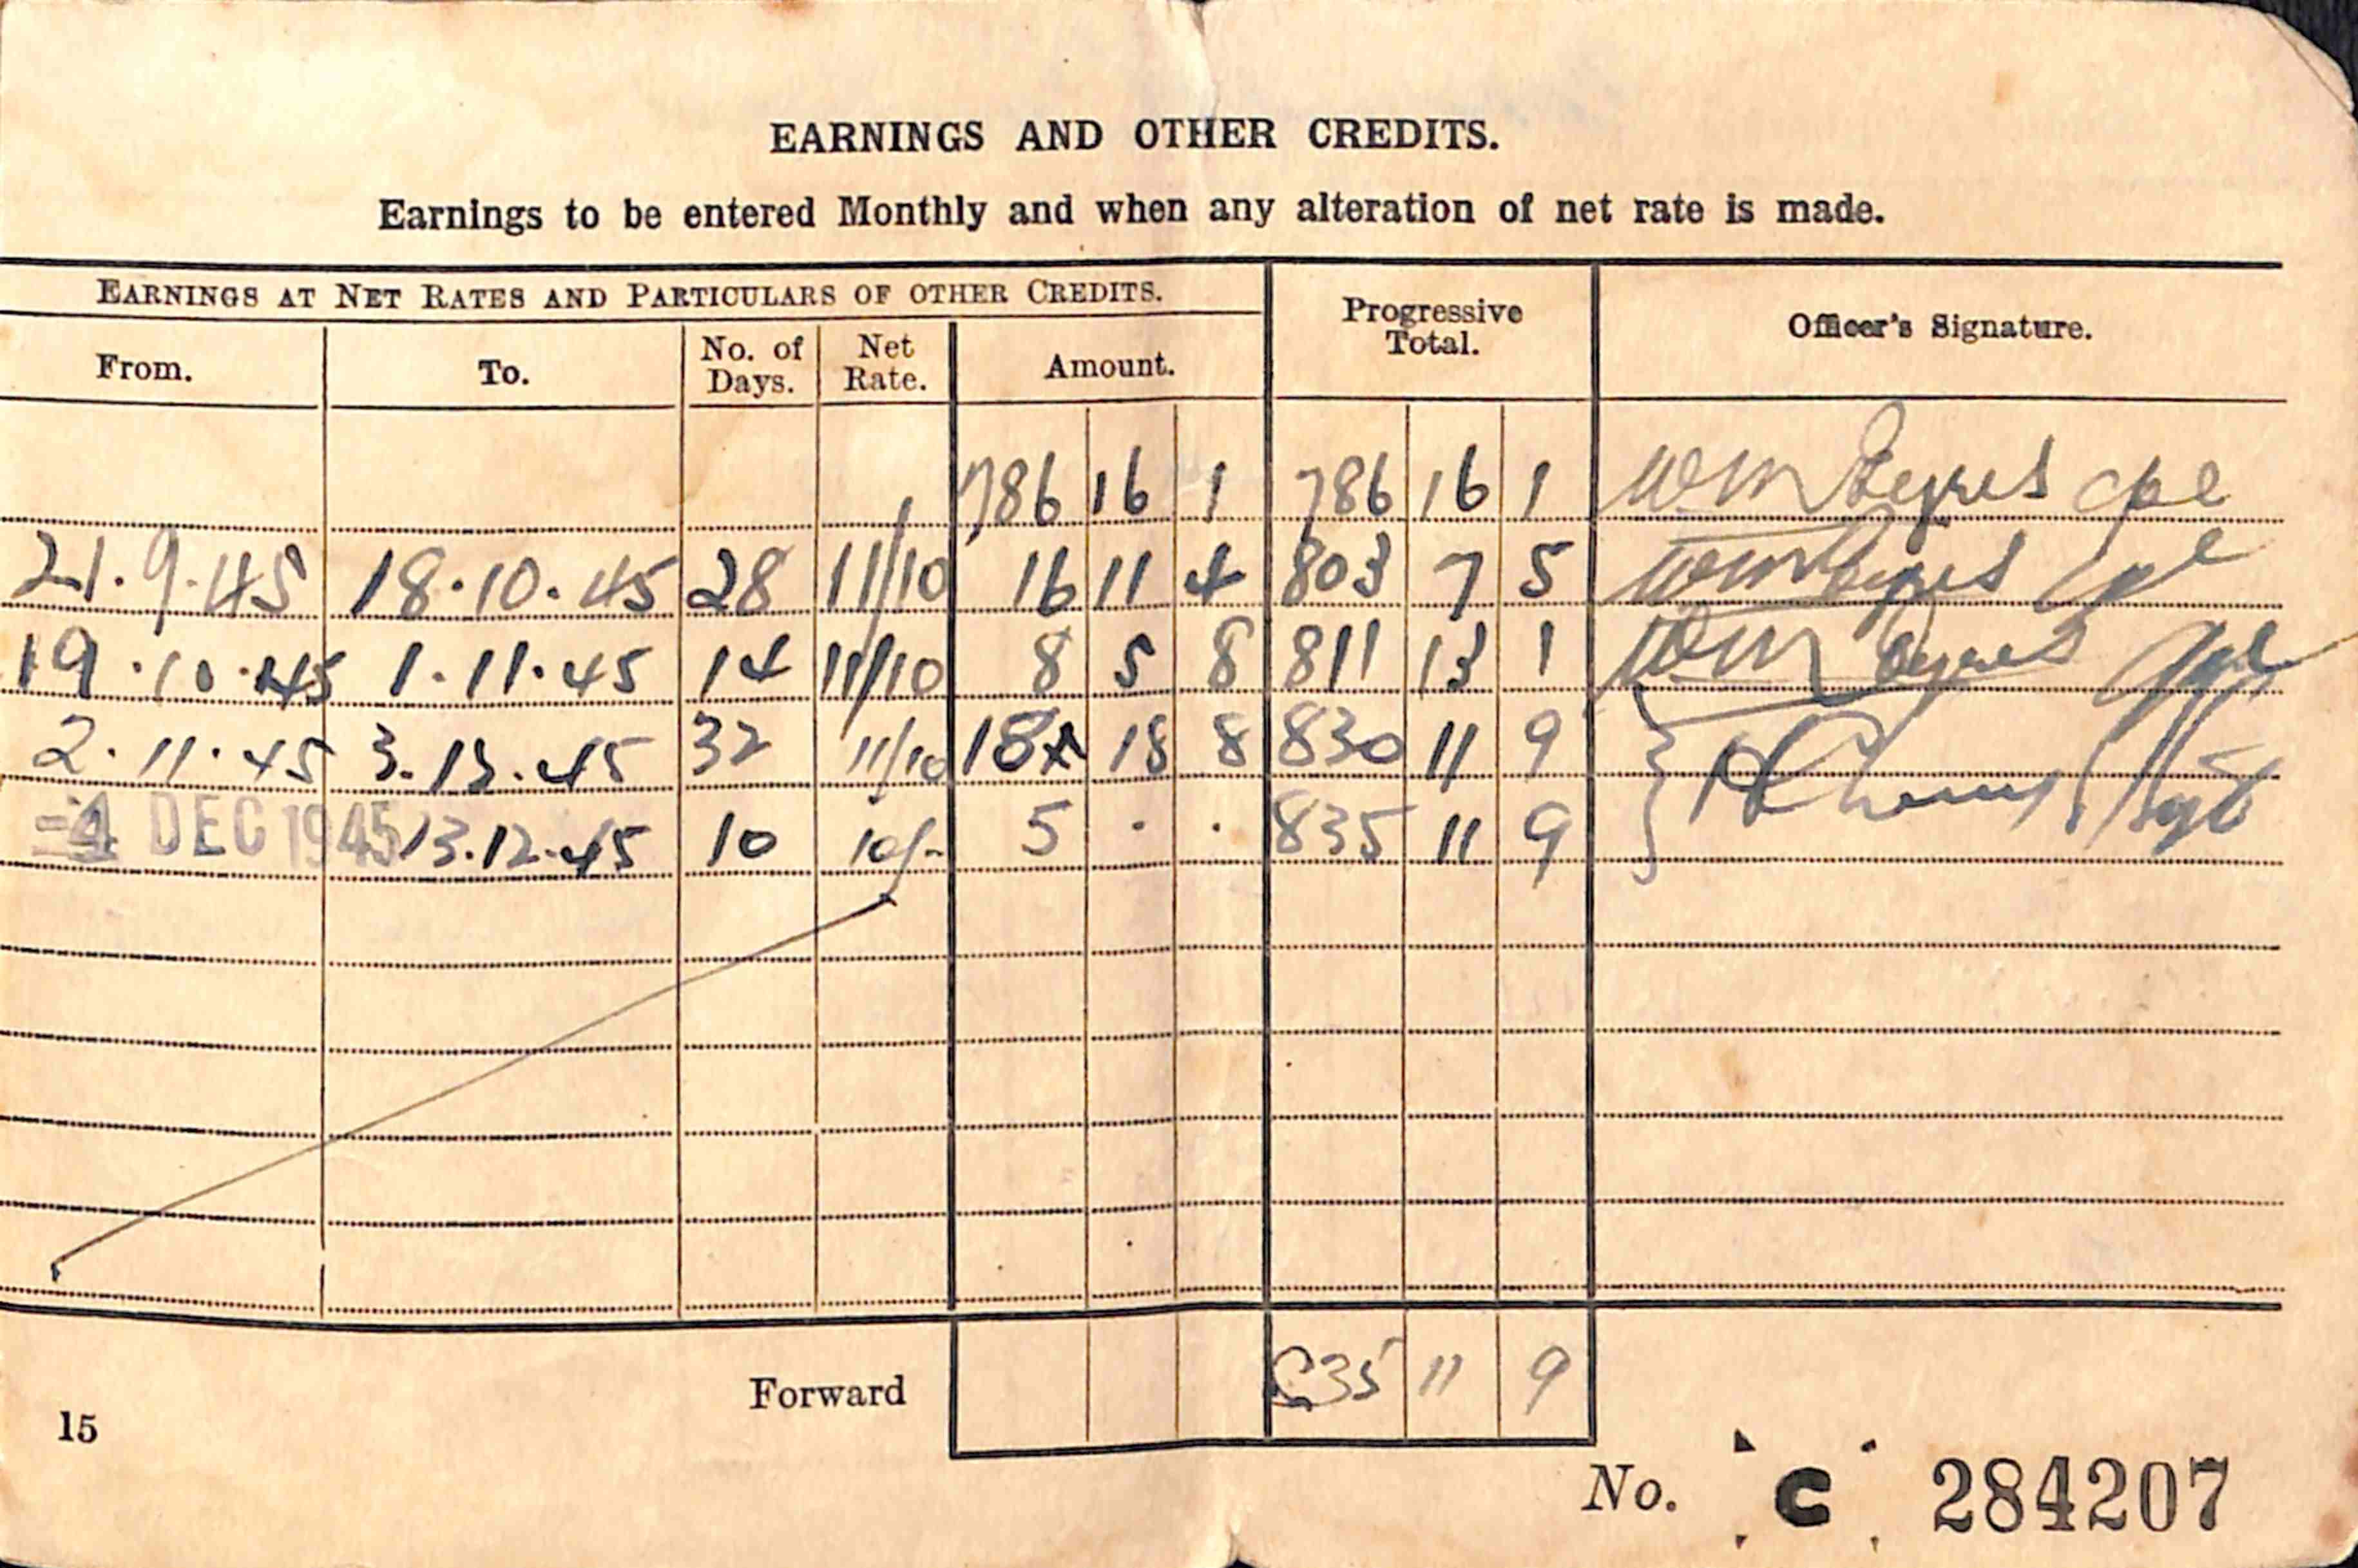 EARNINGS AND OTHER CREDITS.
Earnings to be entered Monthly and when any alteration of net rate is made.
EARNINGS AT NET RATES AND PARTICULARS OF OTHER CREDITS. Progressive Total. Officer's Signature.
From. To. No. of Days. Net Rate. Amount.
786 16 1 786 16 1 Wm Cpl
21.9.45 18.10.45 28 11/10 16 11 4 803 7 5 Wm Cpl
19.10.45 1.11.45 14 11/10 8 5 8 811 13 1 Wm Cpl
2.11.45 3.12.45 32 11/10 18 18 8 830 11 9
-4 DEC 1945 13.12.45 10 10/- 5 . . 835 11 9 Sgt
Forward 835 11 9
15
No. C 284207